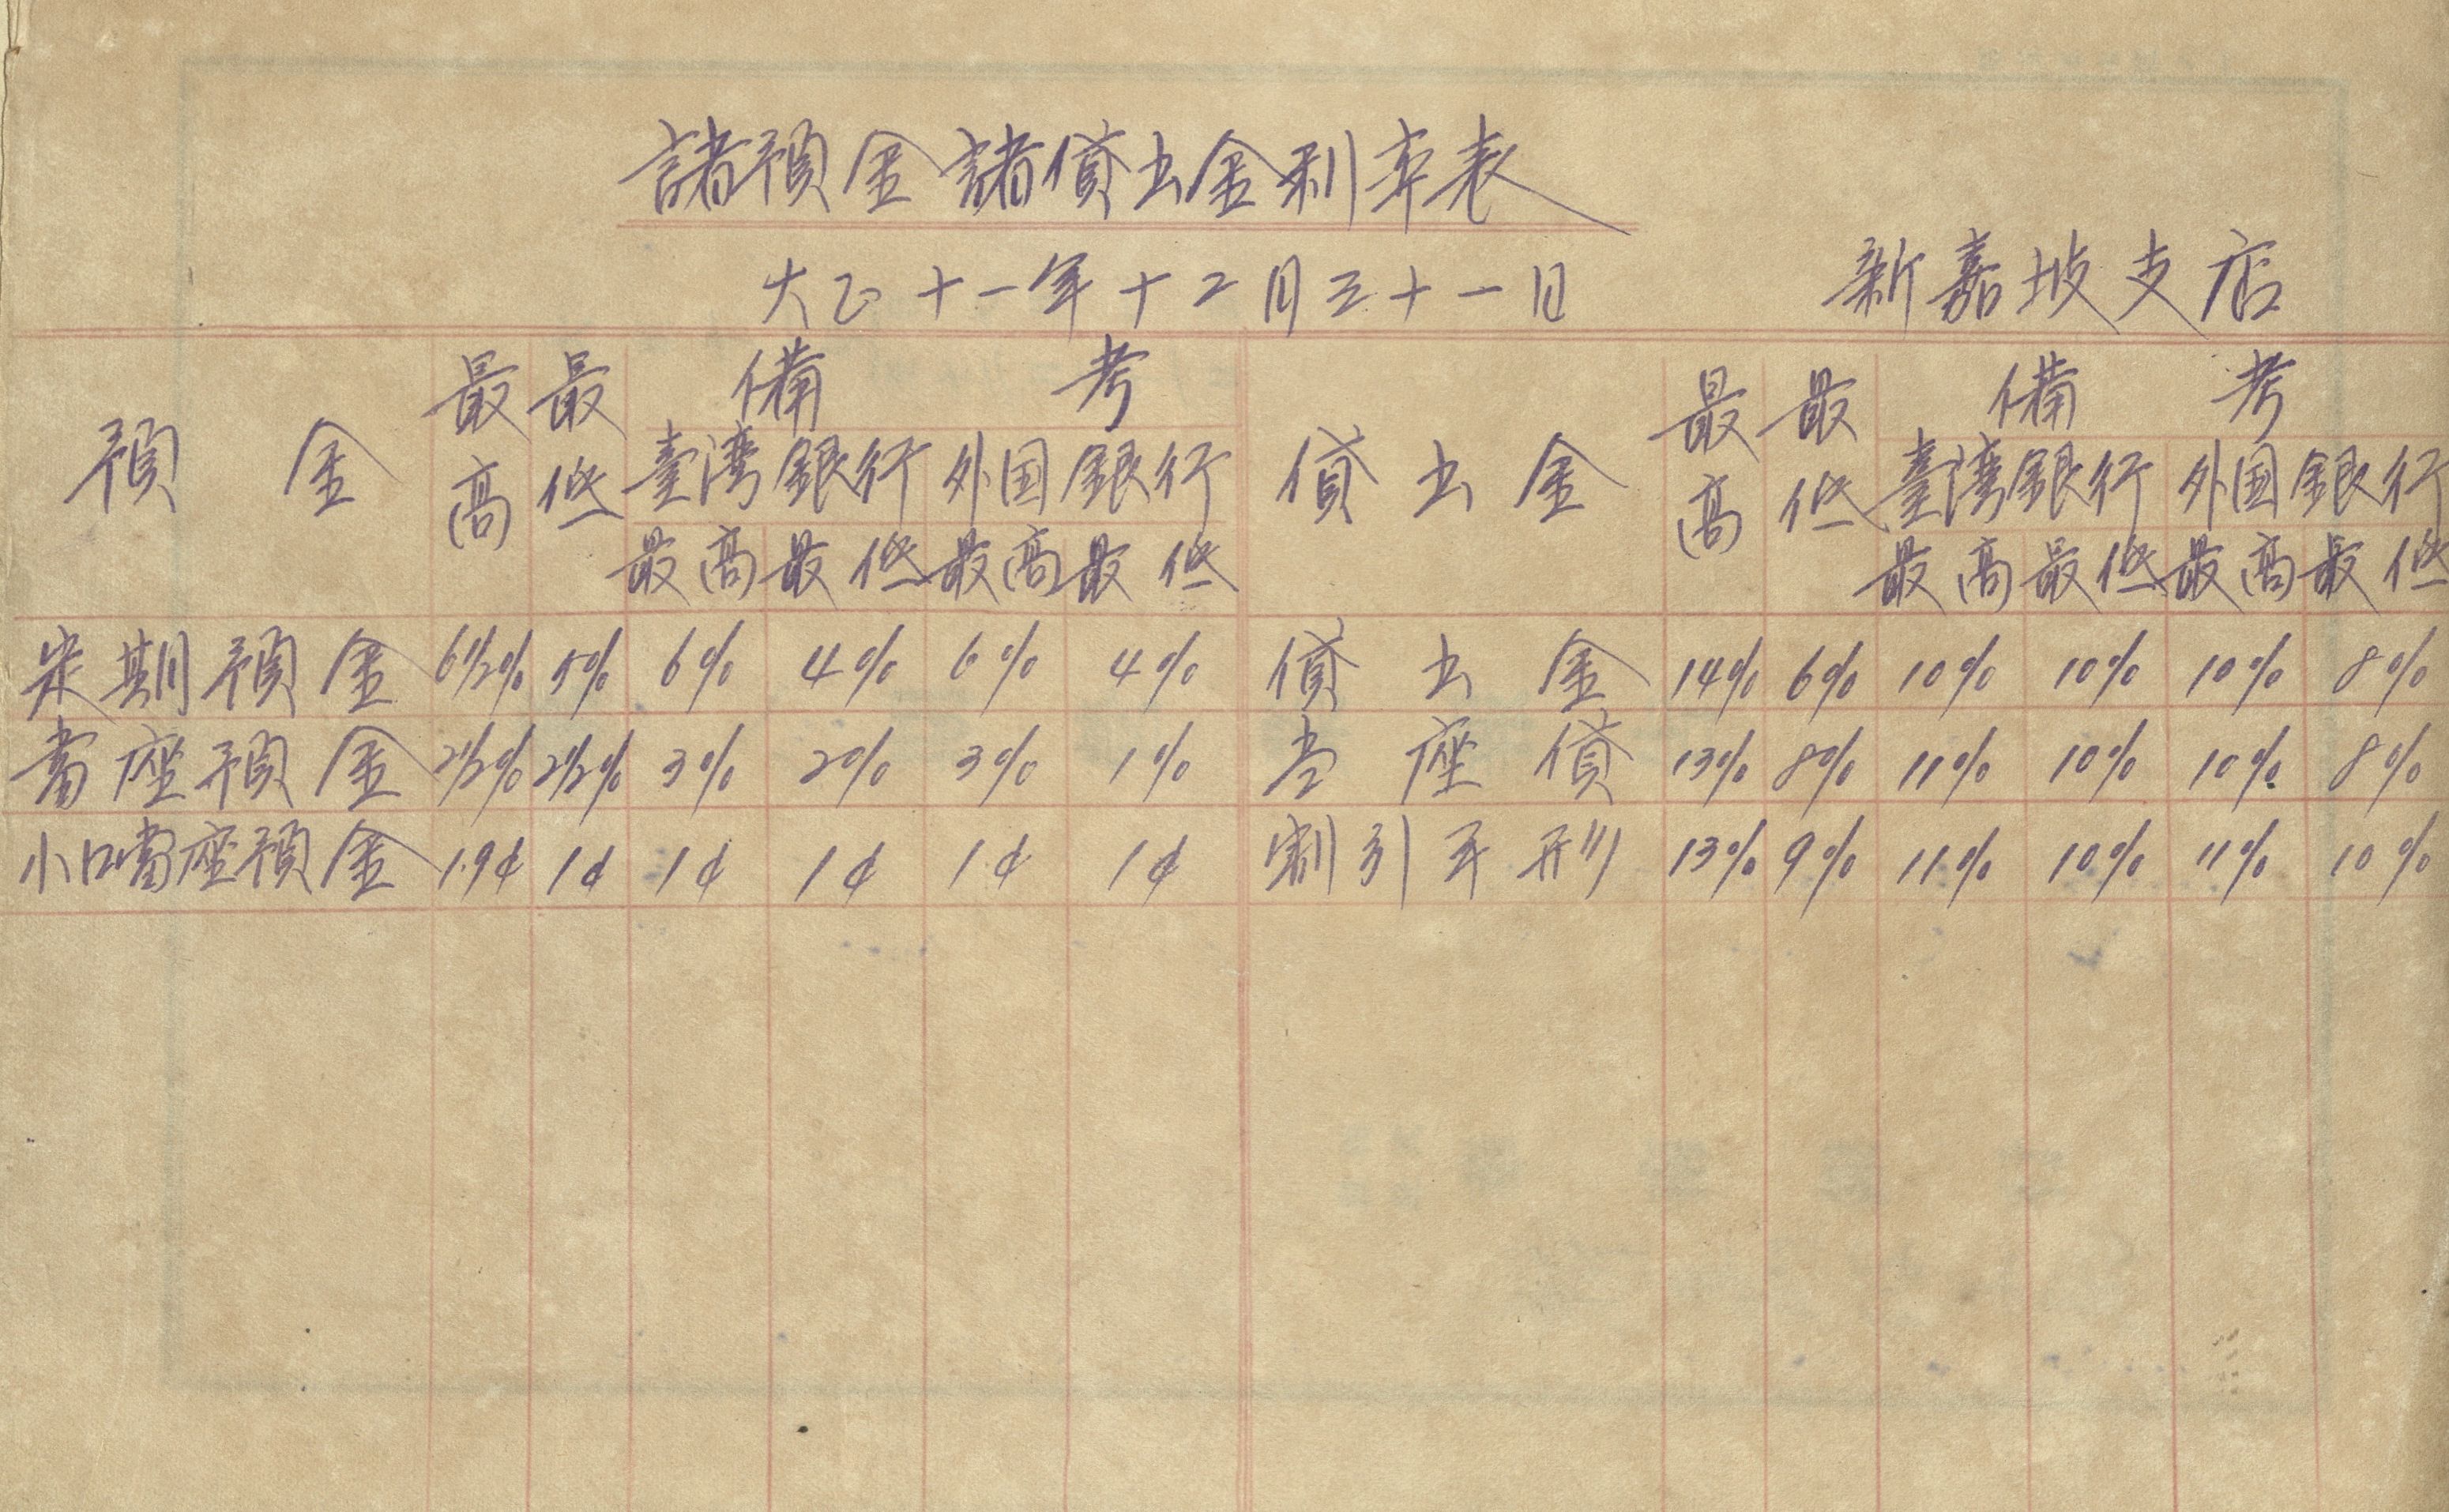 諸預金諸貸出金利率表
大正十一年十二月三十一日
新嘉坡支店
預金 最高 最低 備考 貸出金 最高 最低 備考
臺湾銀行 外国銀行 臺湾銀行 外国銀行
最高 最低 最高 最低 最高 最低 最高 最低
定期預金 6½% 5% 6% 4% 6% 4% 貸出金 14% 6% 10% 10% 10% 8%
當座預金 2½% 2½% 3% 2% 3% 1% 当座貸 13% 8% 11% 10% 10% 8%
小口當座預金 1.9¢ 1¢ 1¢ 1¢ 1¢ 1¢ 割引手形 13% 9% 11% 10% 11% 10%